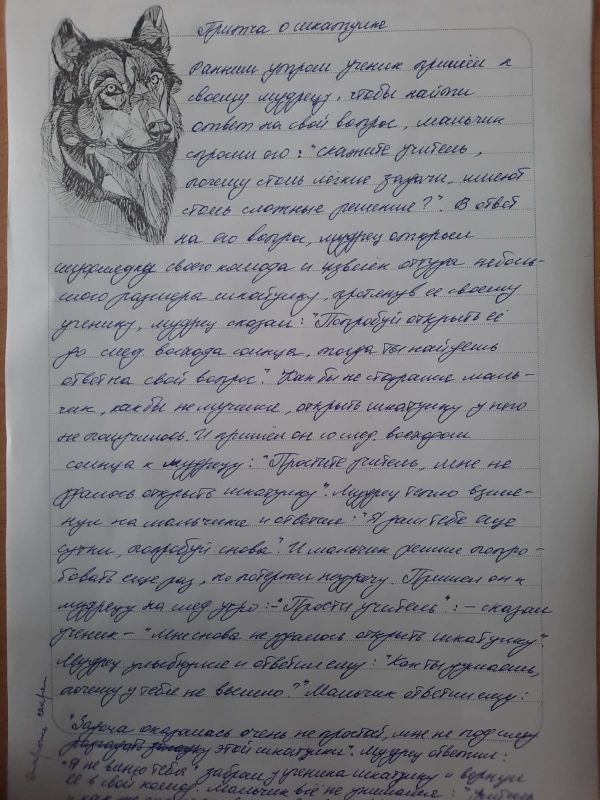 Притча о шкатулке
Ранним утром ученик пришёл к
своему мудрецу, чтобы найти
ответ на свой вопрос, мальчик
спросил его: "скажите учитель,
почему столь лёгкие задачи, имеют
столь сложные решение?". В ответ
на его вопрос, мудрец открыл
своего комода и извлёк оттуда неболь-
шого размера шкатулку, протянув её своему
ученику, мудрец сказал: "Попробуй открыть её
до след. восхода солнца, тогда ты найдешь
ответ на свой вопрос". Как бы не старался маль-
чик, как бы не мучился, открыть шкатулку у него
не получилось. И пришёл он со след. восходом
солнца к мудрецу: "Простите учитель, мне не
удалось открыть шкатулку". Мудрец тепло взгля-
нул на мальчика и ответил: "Я дам тебе еще
сутки, попробуй снова". И мальчик решил попро-
бовать еще раз, но потерпел неудачу. Пришел он к
мудрецу на след утро: -"Прости учитель": - сказал
ученик - "Мне снова не удалось открыть шкатулку".
Мудрец улыбнулся и ответил ему: "Как ты думаешь,
почему у тебя не вышло?" Мальчик ответил ему:
"Задача оказалась очень не простой, мне не под силу
разгадать этой шкатулки". Мудрец ответил:
"Я не виню тебя" забрал у ученика шкатулку и вернул
её в свой комод. Мальчик всё не унимался: "Учитель